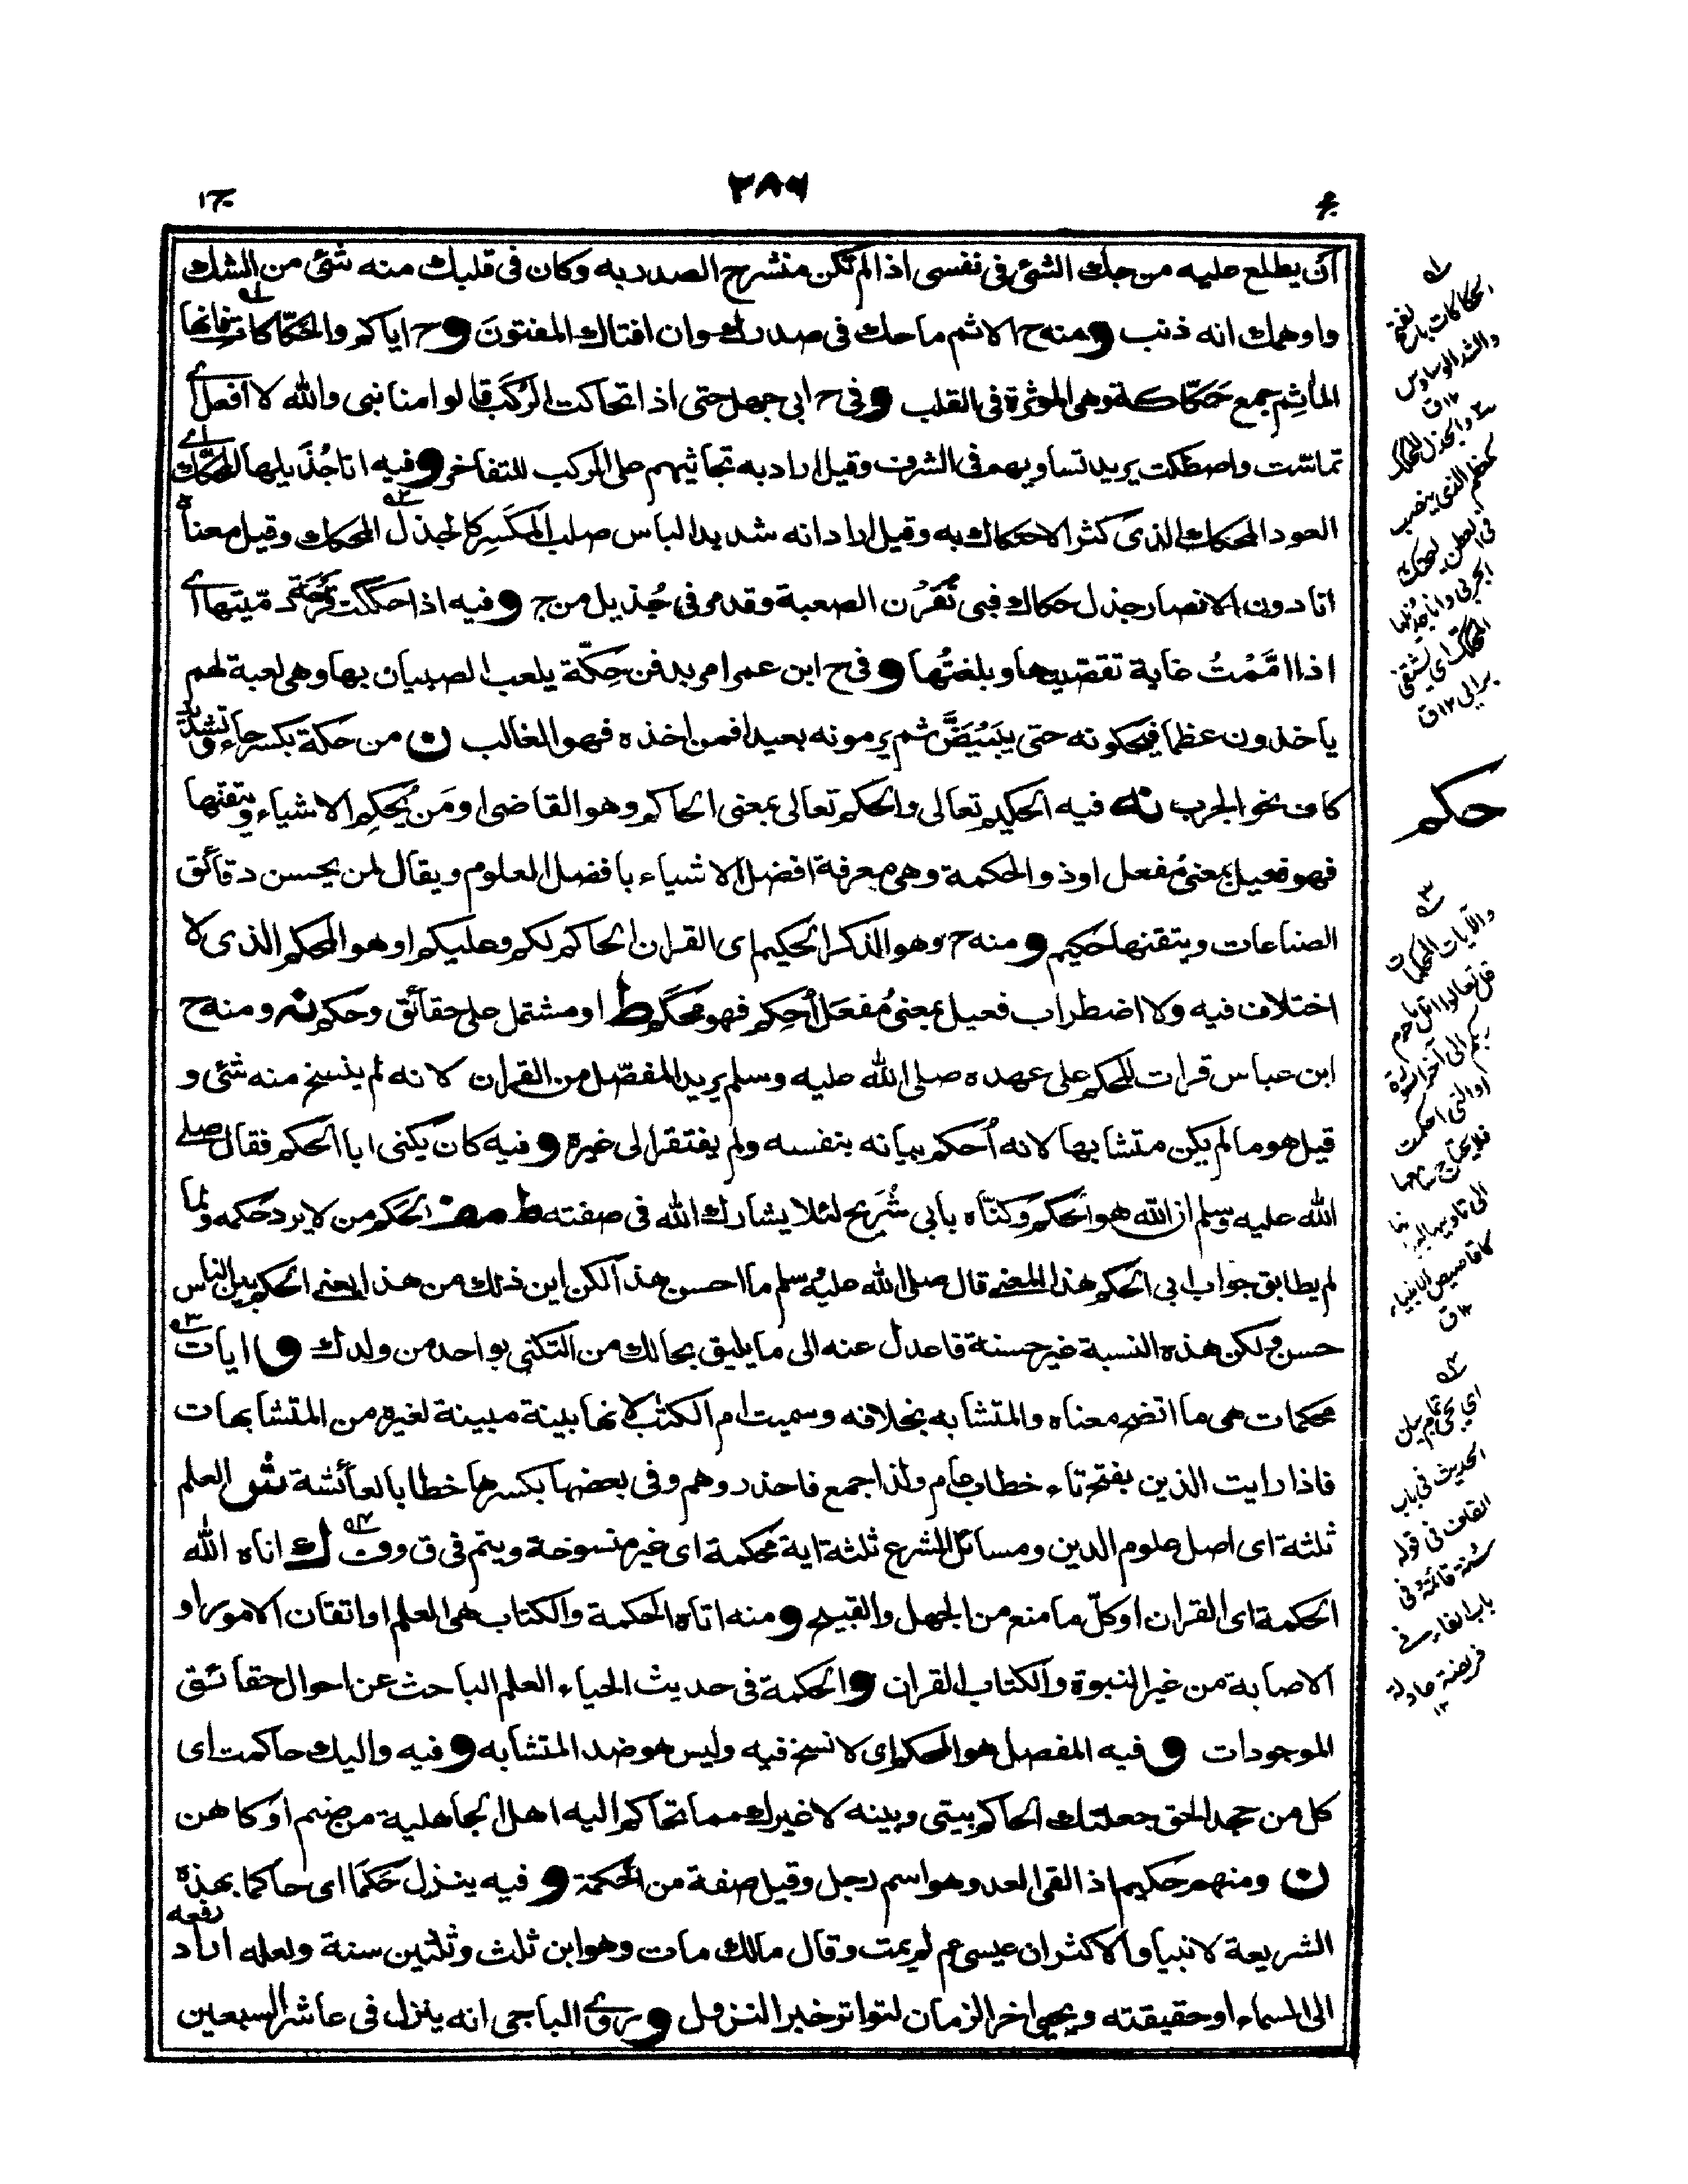 ج١
٢٨٦
ان يطلع عليه من حك الشئ فى نفسى اذا لم تكن منشرح الصدر به وكان فى قلبك منه شئ من الشك
واوهمك انه ذنب ومنه ح الاثم ما حك فى صدرك وان افتاك المفتون وح اياكم والحكاكات فانها
المأثم جمع حكاكة وهى الموثرة فى القلب وفى ح ابى جهل حتى اذا تحاكت الركب قالوا منا نبى والله لا افعل اى
تماست واصطكت يريد تساويهم فى الشرف وقيل اراد به تجاثيهم على الركب للتفاخر وفيه انا جذيلها المحكك اى
العود المحكك الذى كثر الاحتكاك به وقيل اراد انه شديد الباس صلب المكسر كالجذل المحكك وقيل معناه
انا دون الانصار جذل حكاك فبى تقرن الصعبة وقد مر فى جذيل من ج وفيه اذا حككت قرحة دميتها اى
اذا اممت غاية تقصيتها وبلغتها وفى ح ابن عمر امر بدفن حكة يلعب الصبيان بها وهى لعبة لهم
ياخذون عظما فيحكونه حتى يبيض ثم يرمونه بعيدا فمن اخذه فهو الغالب ن من حكة بكسر حاء وتشديد
كاف نحو الجرب نه فيه الحكيم تعالى والحكم تعالى بمعنى الحاكم وهو القاضى او من يحكم الاشياء ويتقنها
فهو فعيل بمعنى مفعل او ذو الحكمة وهى معرفة افضل الاشياء بافضل العلوم ويقال لمن يحسن دقائق
الصناعات ويتقنها حكيم ومنه ح وهو الذكر الحكيم اى القران الحاكم لكم وعليكم او هو المحكم الذى لا
اختلاف فيه ولا اضطراب فعيل بمعنى مفعل احكم فهو محكم ط او مشتمل على حقائق وحكم نه ومنه ح
ابن عباس قرات المحكم على عهده صلى الله عليه وسلم يريد المفصل من القران لانه لم ينسخ منه شئ و
قيل هو ما لم يكن متشابها لانه احكم بيانه بنفسه ولم يفتقر الى غيره وفيه كان يكنى ابا الحكم فقال صلى
الله عليه وسلم ان الله هو الحكم وكناه بابى شريح لئلا يشارك الله فى صفته ط مض الحكم من لا يرد حكمه ولما
لم يطابق جواب ابى الحكم هذا المعنى قال صلى الله عليه وسلم ما احسن هذا لكن اين ذلك من هذا يعنى الحكم بين الناس
حسن ولكن هذه النسبة غير حسنة فاعدل عنه الى ما يليق بحالك من التكنى بواحد من ولدك و ايات
محكمات هى ما اتضح معناه والمتشابه بخلافه وسميت ام الكتب لانها بينة مبينة لغيره من المتشابهات
فاذا رايت الذين بفتح تاء خطاب عام ولذا جمع فاحذروهم وفى بعضها بكسرها خطابا لعائشة ش العلم
ثلثة اى اصل علوم الدين ومسائل الشرع ثلثة اية محكمة اى غير منسوخة ويتم فى ق وف ك اتاه الله
الحكمة اى القران او كل ما منع من الجهل والقبيح ومنه اتاه الحكمة والكتاب هى العلم او اتقان الامور او
الاصابة من غير النبوة والكتاب القران والحكمة فى حديث الحياء العلم الباحث عن احوال حقائق
الموجودات وفيه المفصل هو المحكم اى لا نسخ فيه وليس هو ضد المتشابه وفيه واليك حاكمت اى
كل من جحد الحق جعلتك الحاكم بينى وبينه لا غيرك مما تحاكم اليه اهل الجاهلية من صنم او كاهن
ن ومنهم حكيم اذا لقى العدو هو اسم رجل وقيل صفة من الحكمة وفيه ينزل حكما اى حاكما بهذه
الشريعة لا نبيا والاكثر ان عيسى عم لم يمت وقال مالك مات وهو ابن ثلث وثلثين سنة ولعله اراد رفعه
الى السماء او حقيقته ويجئ اخر الزمان لتواتر خبر النزول وروى الباجى انه ينزل فى عاشر السبعين
الحكاكات بارفتح
والشد الوساوس
١٢ ق
والجذل المحكك
الذى ينصب
فى العطن لتحتك
الجربى وانا جذيلها
المحكك اى يستشفى
برايى ١٢ ق
حكم
والآيات المحكمات
قل تعالوا اتل ما حرم
ربكم الى آخر السورة
او التى احكمت
فلا يحتاج سامعها
الى تاويلها لبيانها
كاقاصيص الانبياء
١٢ ق
اى يجئ تمام بيان
الحديث فى باب
القاف فى قوله
سنة قائمة وفى
باب الفاء فى
فريضة عادلة
١٢